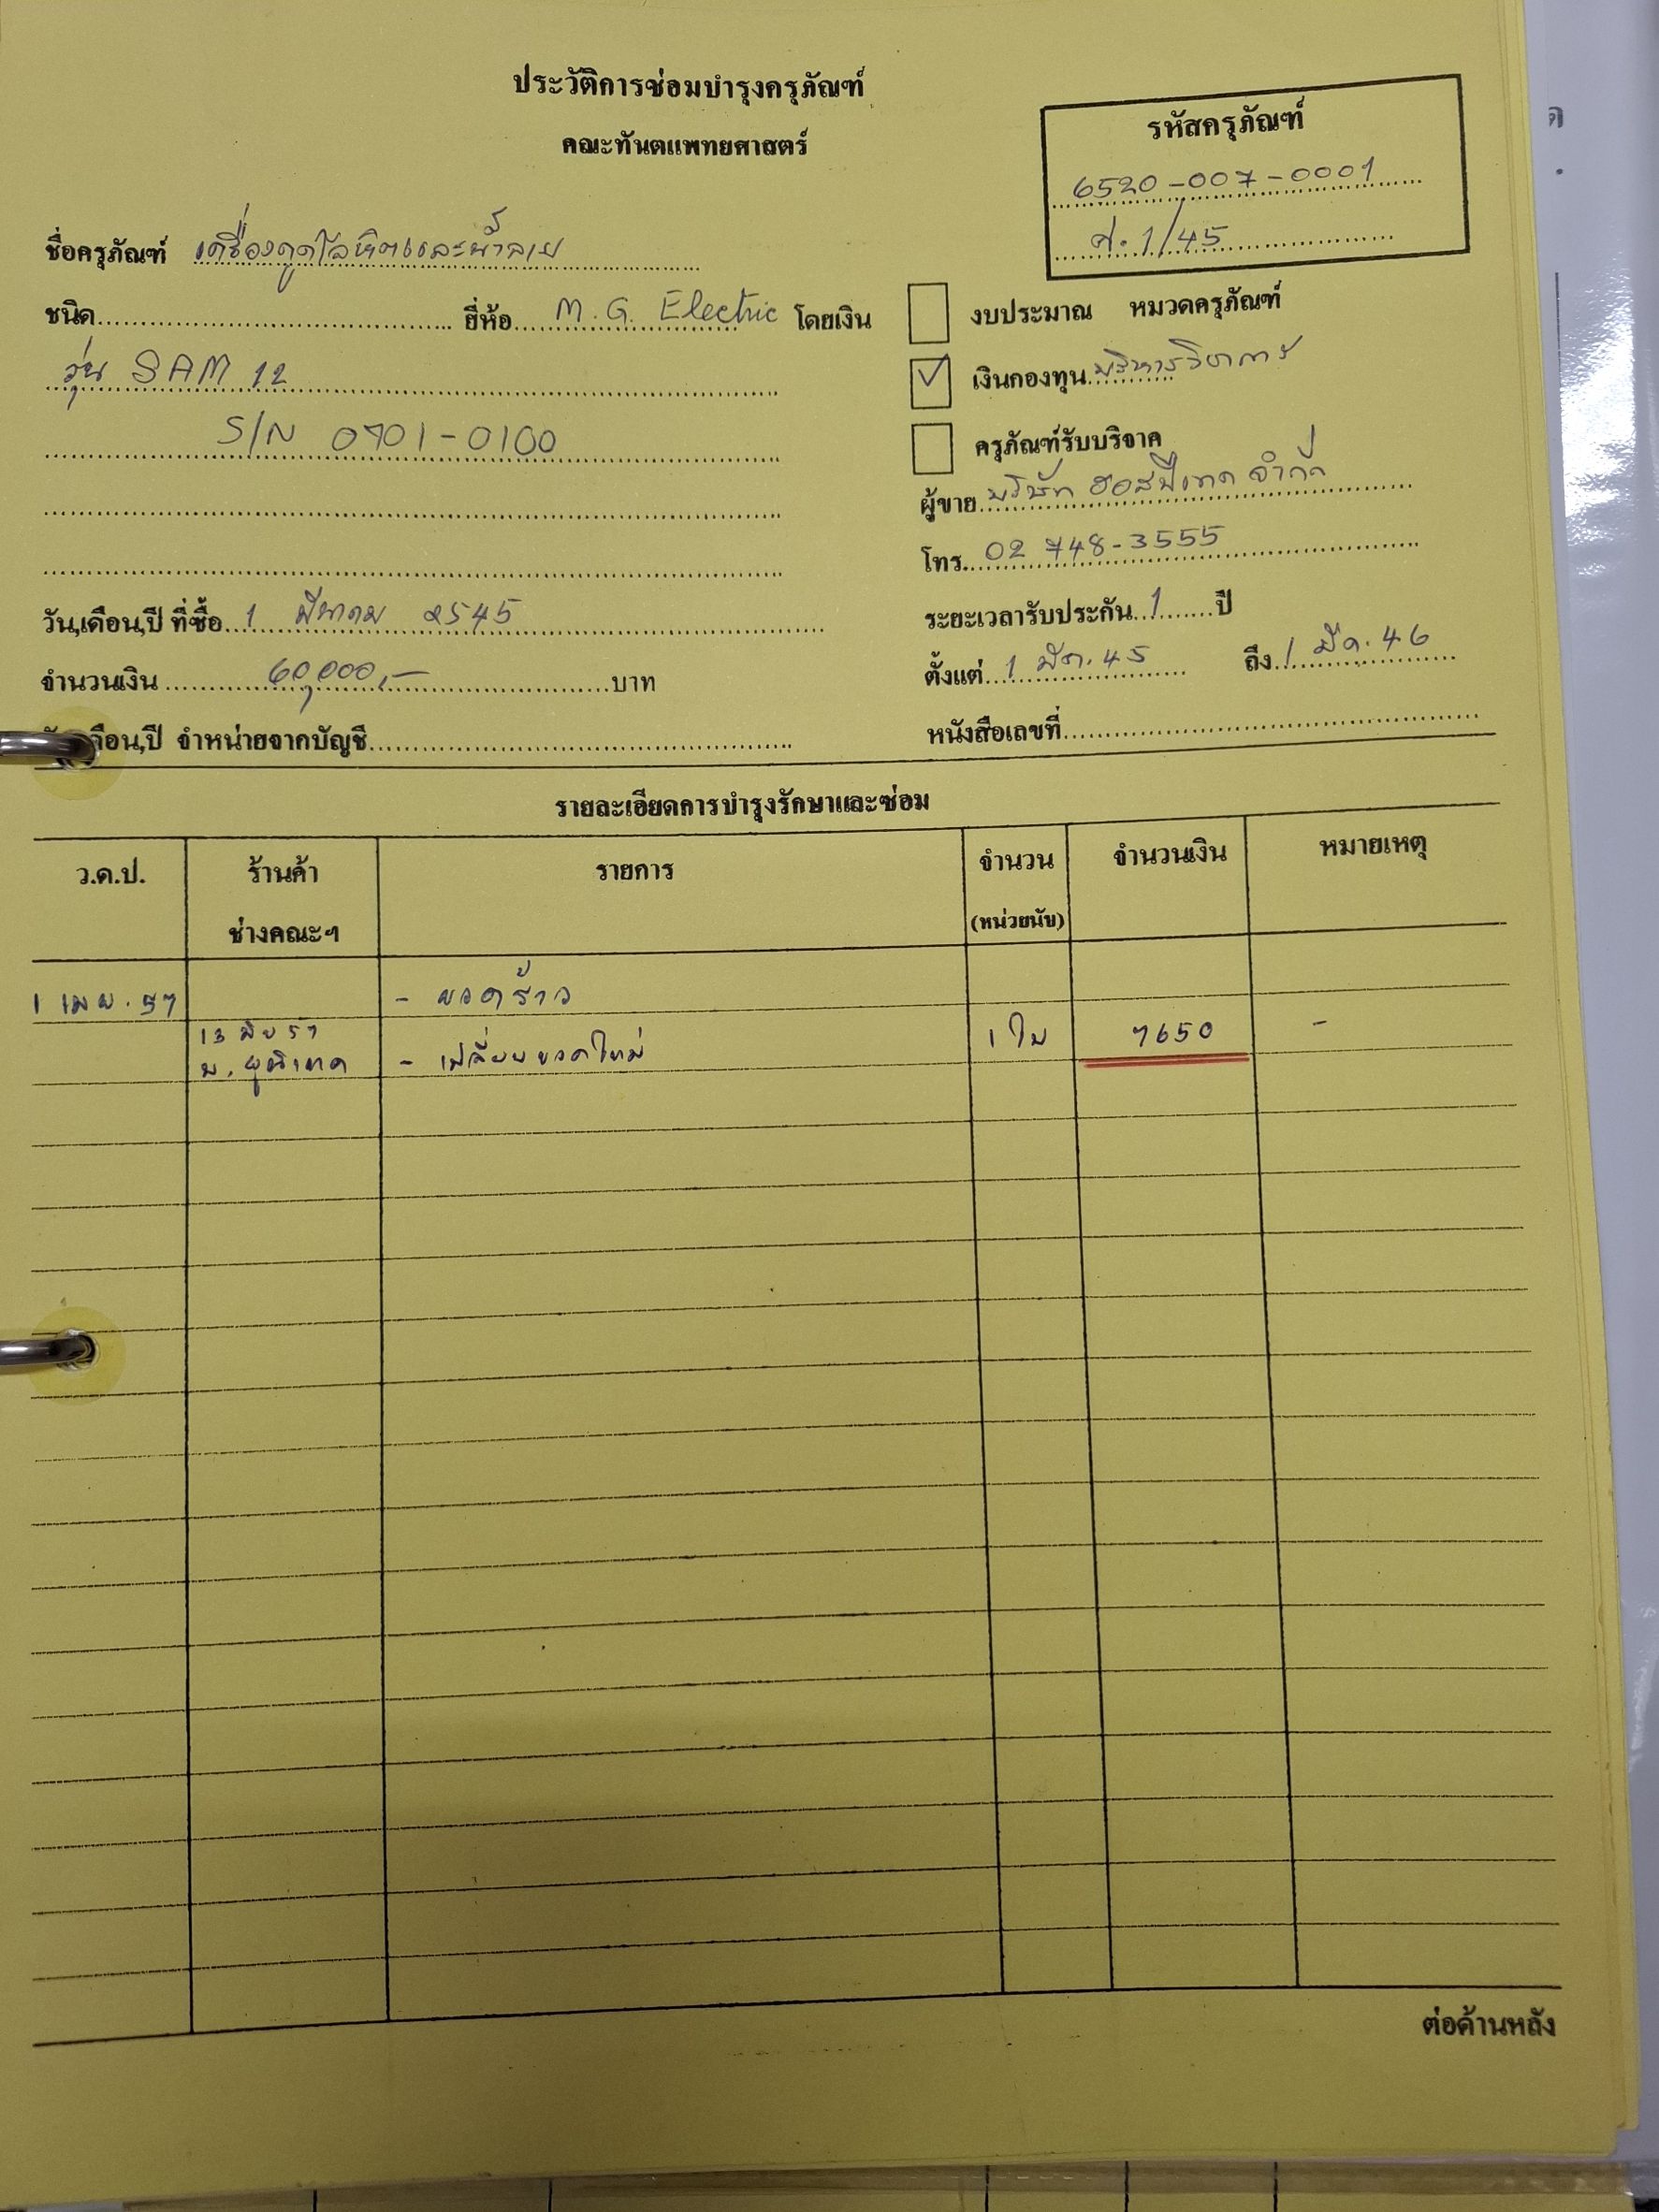 ประวัติการซ่อมบำรุงครุภัณฑ์
คณะทันตแพทยศาสตร์
รหัสครุภัณฑ์
6520-007-0001
ศ. 1/45
ชื่อครุภัณฑ์ เครื่องดูดโลหิตและน้ำลาย
ชนิด ยี่ห้อ M.G. Electric โดยเงิน
งบประมาณ หมวดครุภัณฑ์
รุ่น SAM 12
✓ เงินกองทุน บริหารวิชาการ
S/N 0701-0100
ครุภัณฑ์รับบริจาค
ผู้ขาย บริษัท ฮอสปิเทค จำกัด
โทร. 02 748-3555
วัน,เดือน,ปี ที่ซื้อ 1 มีนาคม 2545
ระยะเวลารับประกัน 1 ปี
จำนวนเงิน 60,000,- บาท
ตั้งแต่ 1 มีค. 45 ถึง 1 มีค. 46
เดือน,ปี จำหน่ายจากบัญชี
หนังสือเลขที่
รายละเอียดการบำรุงรักษาและซ่อม
ว.ด.ป. ร้านค้า รายการ จำนวน จำนวนเงิน หมายเหตุ
ช่างคณะฯ (หน่วยนับ)
1 เมย. 57 - ขวดร้าว
13 มิย 57
บ. ยูนิเทค - เปลี่ยนขวดใหม่ 1 ใบ 7650 -
ต่อด้านหลัง